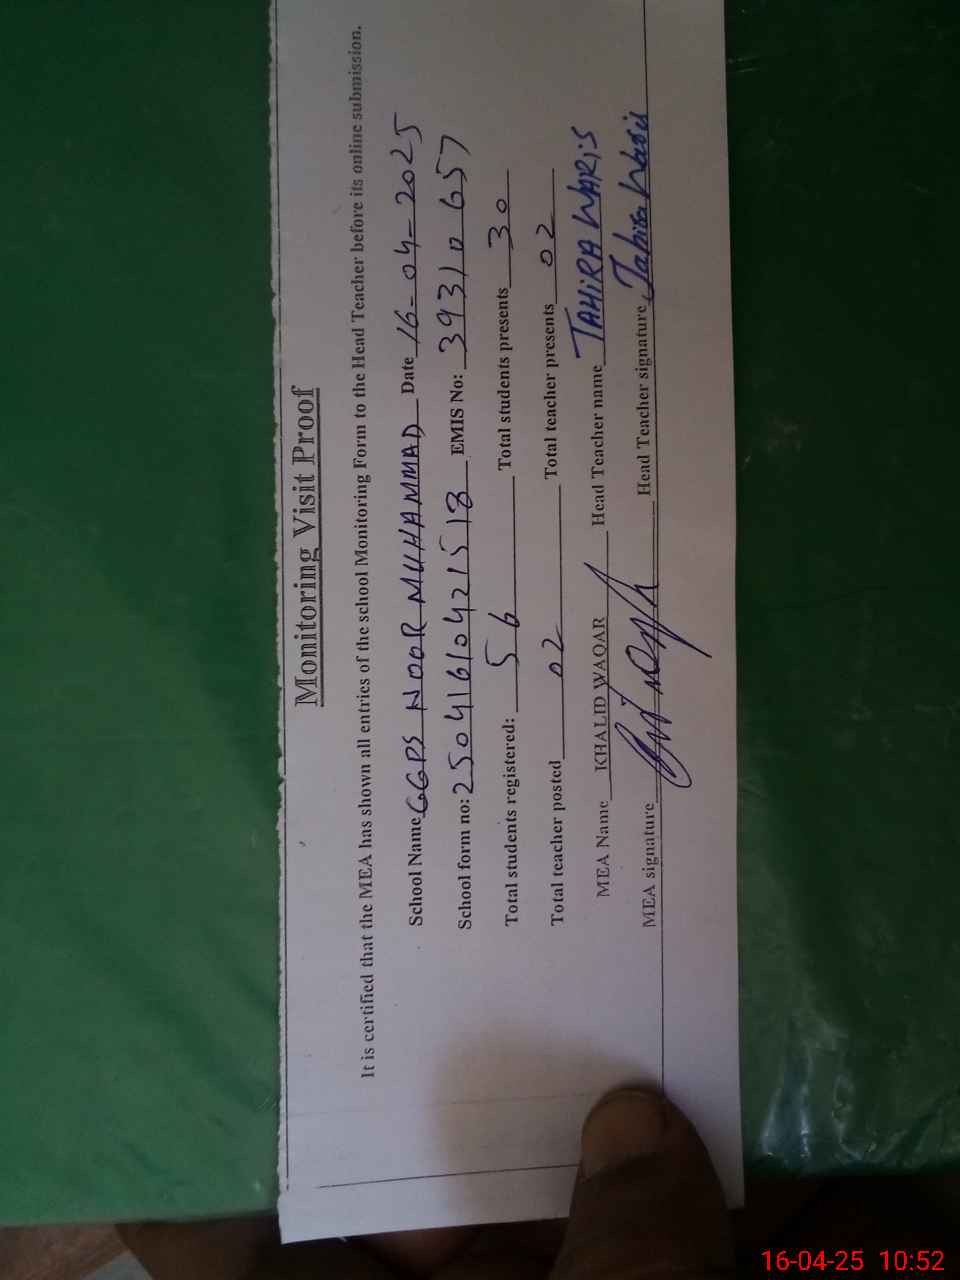 Monitoring Visit Proof
It is certified that the MEA has shown all entries of the school Monitoring Form to the Head Teacher before its online submission.
School Name GGPS NOOR MUHAMMAD Date 16-04-2025
School form no: 25041610421518 EMIS No: 39310657
Total students registered: 56 Total students presents 30
Total teacher posted 02 Total teacher presents 02
MEA Name KHALID WAQAR Head Teacher name TAHIRA WARIS
MEA signature Head Teacher signature Tahira Waris
16-04-25 10:52